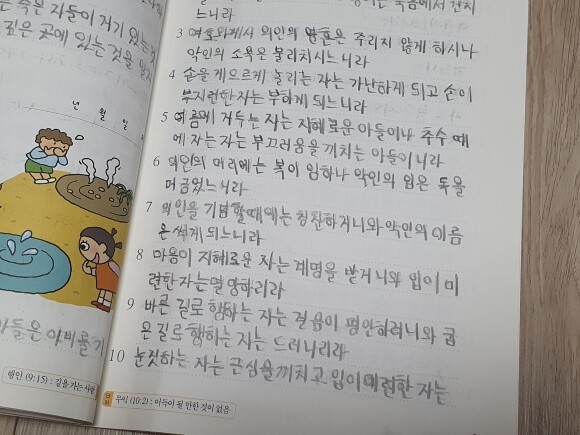 는 죽은 자들이 거기 있는 것
깊은 곳에 있는 것을 알지
년 월 일
아들은 아비를 기
행인 (9:15) : 길을 가는 사람
는 죽음에서 건지
느니라
3 여호와께서 의인의 영혼은 주리지 않게 하시나
악인의 소욕은 물리치시느니라
4 손을 게으르게 놀리는 자는 가난하게 되고 손이
부지런한 자는 부하게 되느니라
5 여름에 거두는 자는 지혜로운 아들이나 추수 때
에 자는 자는 부끄러움을 끼치는 아들이니라
6 의인의 머리에는 복이 임하나 악인의 입은 독을
머금었느니라
7 의인을 기념할때에는 칭찬하거니와 악인의 이름
은 썩게 되느니라
8 마음이 지혜로운 자는 계명을 받거니와 입이 미
련한 자는 멸망하리라
9 바른 길로 행하는 자는 걸음이 평안하려니와 굽
은 길로 행하는 자는 드러나리라
10 눈짓하는 자는 근심을 끼치고 입이 미련한 자는
무익 (10:2) : 이득이 될 만한 것이 없음